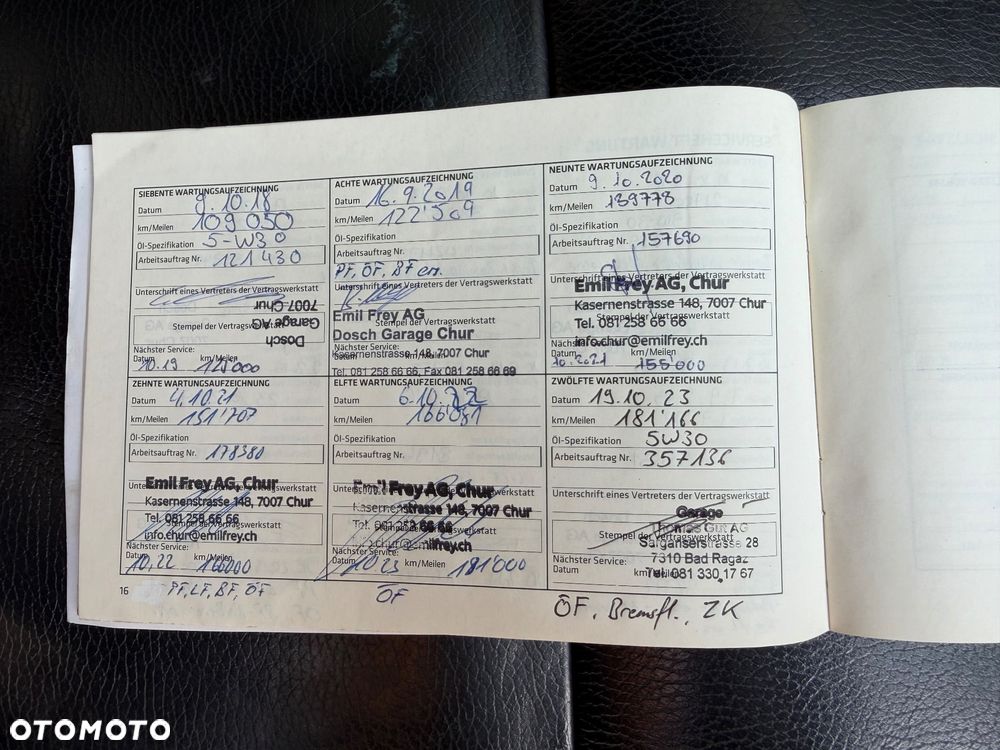 SIEBENTE WARTUNGSAUFZEICHNUNG
Datum 9.10.18
km/Meilen 109 050
Öl-Spezifikation 5-W30
Arbeitsauftrag Nr. 121 430
Unterschrift eines Vertreters der Vertragswerkstatt
Dosch
Garage AG
7007 Chur
Stempel der Vertragswerkstatt
Nächster Service:
Datum 10.19 km/Meilen 124'000
ACHTE WARTUNGSAUFZEICHNUNG
Datum 16.9.2019
km/Meilen 122'509
Öl-Spezifikation
Arbeitsauftrag Nr.
PF, ÖF, BF
Unterschrift eines Vertreters der Vertragswerkstatt
Emil Frey AG
Stempel der Vertragswerkstatt
Dosch Garage Chur
Nächster Service:
Kasernenstrasse 148, 7007 Chur
Datum km/Meilen
Tel. 081 258 66 66, Fax 081 258 66 69
NEUNTE WARTUNGSAUFZEICHNUNG
Datum 9.10.2020
km/Meilen 139778
Öl-Spezifikation
Arbeitsauftrag Nr. 157690
Unterschrift eines Vertreters der Vertragswerkstatt
Emil Frey AG, Chur
Kasernenstrasse 148, 7007 Chur
Stempel der Vertragswerkstatt
Tel. 081 258 66 66
info.chur@emilfrey.ch
Nächster Service:
Datum 10.2021 km/Meilen 155'000
ZEHNTE WARTUNGSAUFZEICHNUNG
Datum 4.10.21
km/Meilen 151'707
Öl-Spezifikation
Arbeitsauftrag Nr. 178380
Unterschrift eines Vertreters der Vertragswerkstatt
Emil Frey AG, Chur
Kasernenstrasse 148, 7007 Chur
Tel. 081 258 66 66
Stempel der Vertragswerkstatt
info.chur@emilfrey.ch
Nächster Service:
Datum 10.22 km/Meilen 166000
PF, LF, BF, ÖF
ELFTE WARTUNGSAUFZEICHNUNG
Datum 6.10.22
km/Meilen 166'081
Öl-Spezifikation
Arbeitsauftrag Nr.
Unterschrift eines Vertreters der Vertragswerkstatt
Emil Frey AG, Chur
Kasernenstrasse 148, 7007 Chur
Tel. 081 258 66 66
Stempel der Vertragswerkstatt
info.chur@emilfrey.ch
Nächster Service:
Datum 10 23 km/Meilen 181'000
ÖF
ZWÖLFTE WARTUNGSAUFZEICHNUNG
Datum 19.10.23
km/Meilen 181'166
Öl-Spezifikation 5W30
Arbeitsauftrag Nr. 357136
Unterschrift eines Vertreters der Vertragswerkstatt
Garage
Thomas Gut AG
Stempel der Vertragswerkstatt
Sarganserstrasse 28
Nächster Service:
7310 Bad Ragaz
Datum km/Meilen
Tel. 081 330 17 67
ÖF, Bremsfl., ZK
16
OTOMOTO